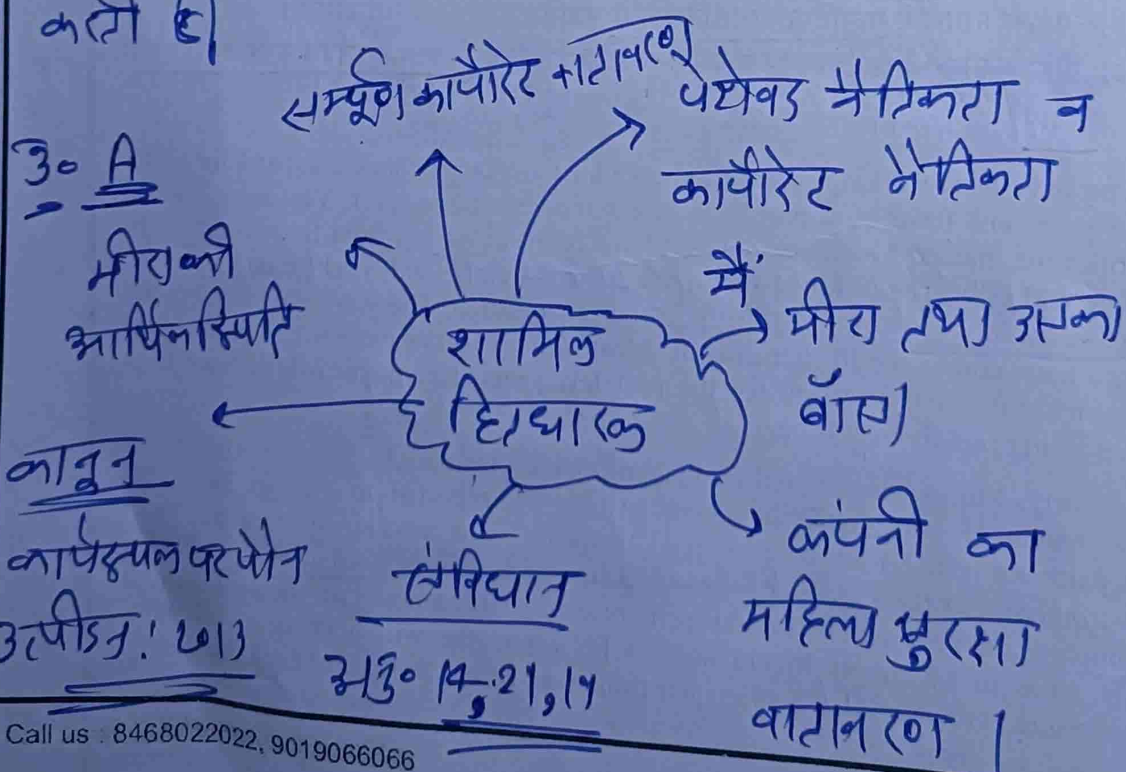 करती है।
सम्पूर्ण कार्पोरेट वातावरण
पेशेवर नैतिकता व
कार्पोरेट नैतिकता
उ० A
मीरा की
आर्थिक स्थिति
शामिल
हितधारक
में
मीरा तथा उसका
बॉस।
कानून
कार्यस्थल पर यौन
उत्पीडन: 2013
संविधान
अनु० 14, 21, 19
कंपनी का
महिला सुरक्षा
वातावरण ।
Call us : 8468022022, 9019066066